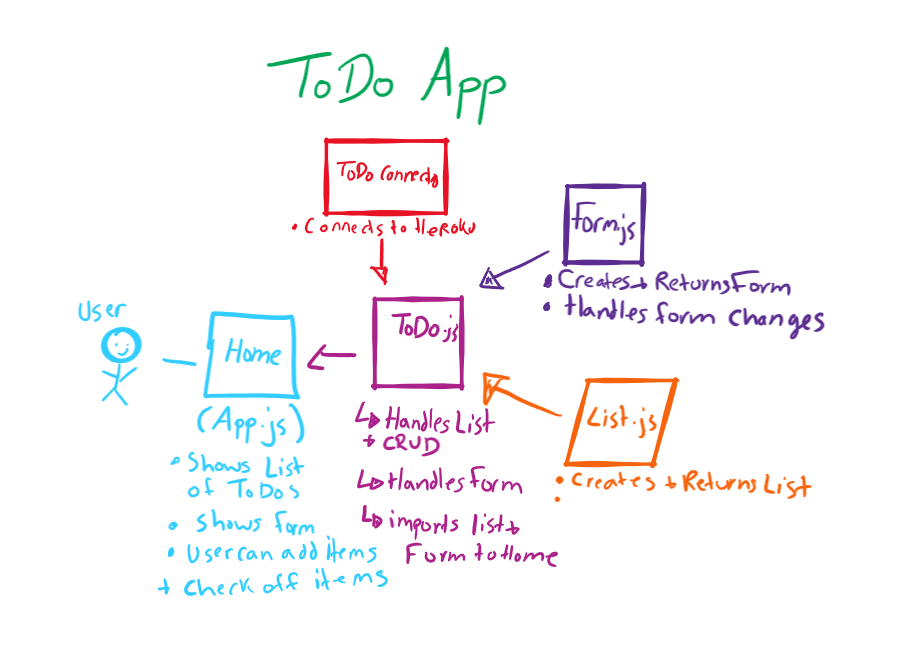 ToDo App
ToDo Connected
• Connects to Heroku
Form.js
• Creates + Returns Form
• Handles form changes
User
Home
(App.js)
• Shows List
of ToDos
• shows form
• User can add items
+ check off items
ToDo.js
↳ Handles List
+ CRUD
↳ Handles Form
↳ imports list +
Form to Home
List.js
• Creates + Returns List
•